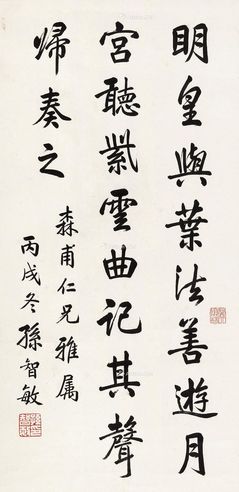 明皇與葉法善遊月
宮聽紫雲曲記其聲
歸奏之
森甫仁兄雅属
丙戌冬孫智敏